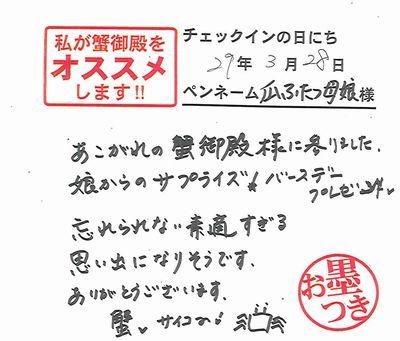 私が蟹御殿を
オススメ
します!!
チェックインの日にち
29年 3月 28日
ペンネーム 瓜ふたつ母娘様
あこがれの蟹御殿様に参りました。
娘からのサプライズ!バースデー
プレゼント♡
忘れられない素適すぎる
思い出になりそうです。
ありがとうございます。
蟹、サイコー!
お墨つき